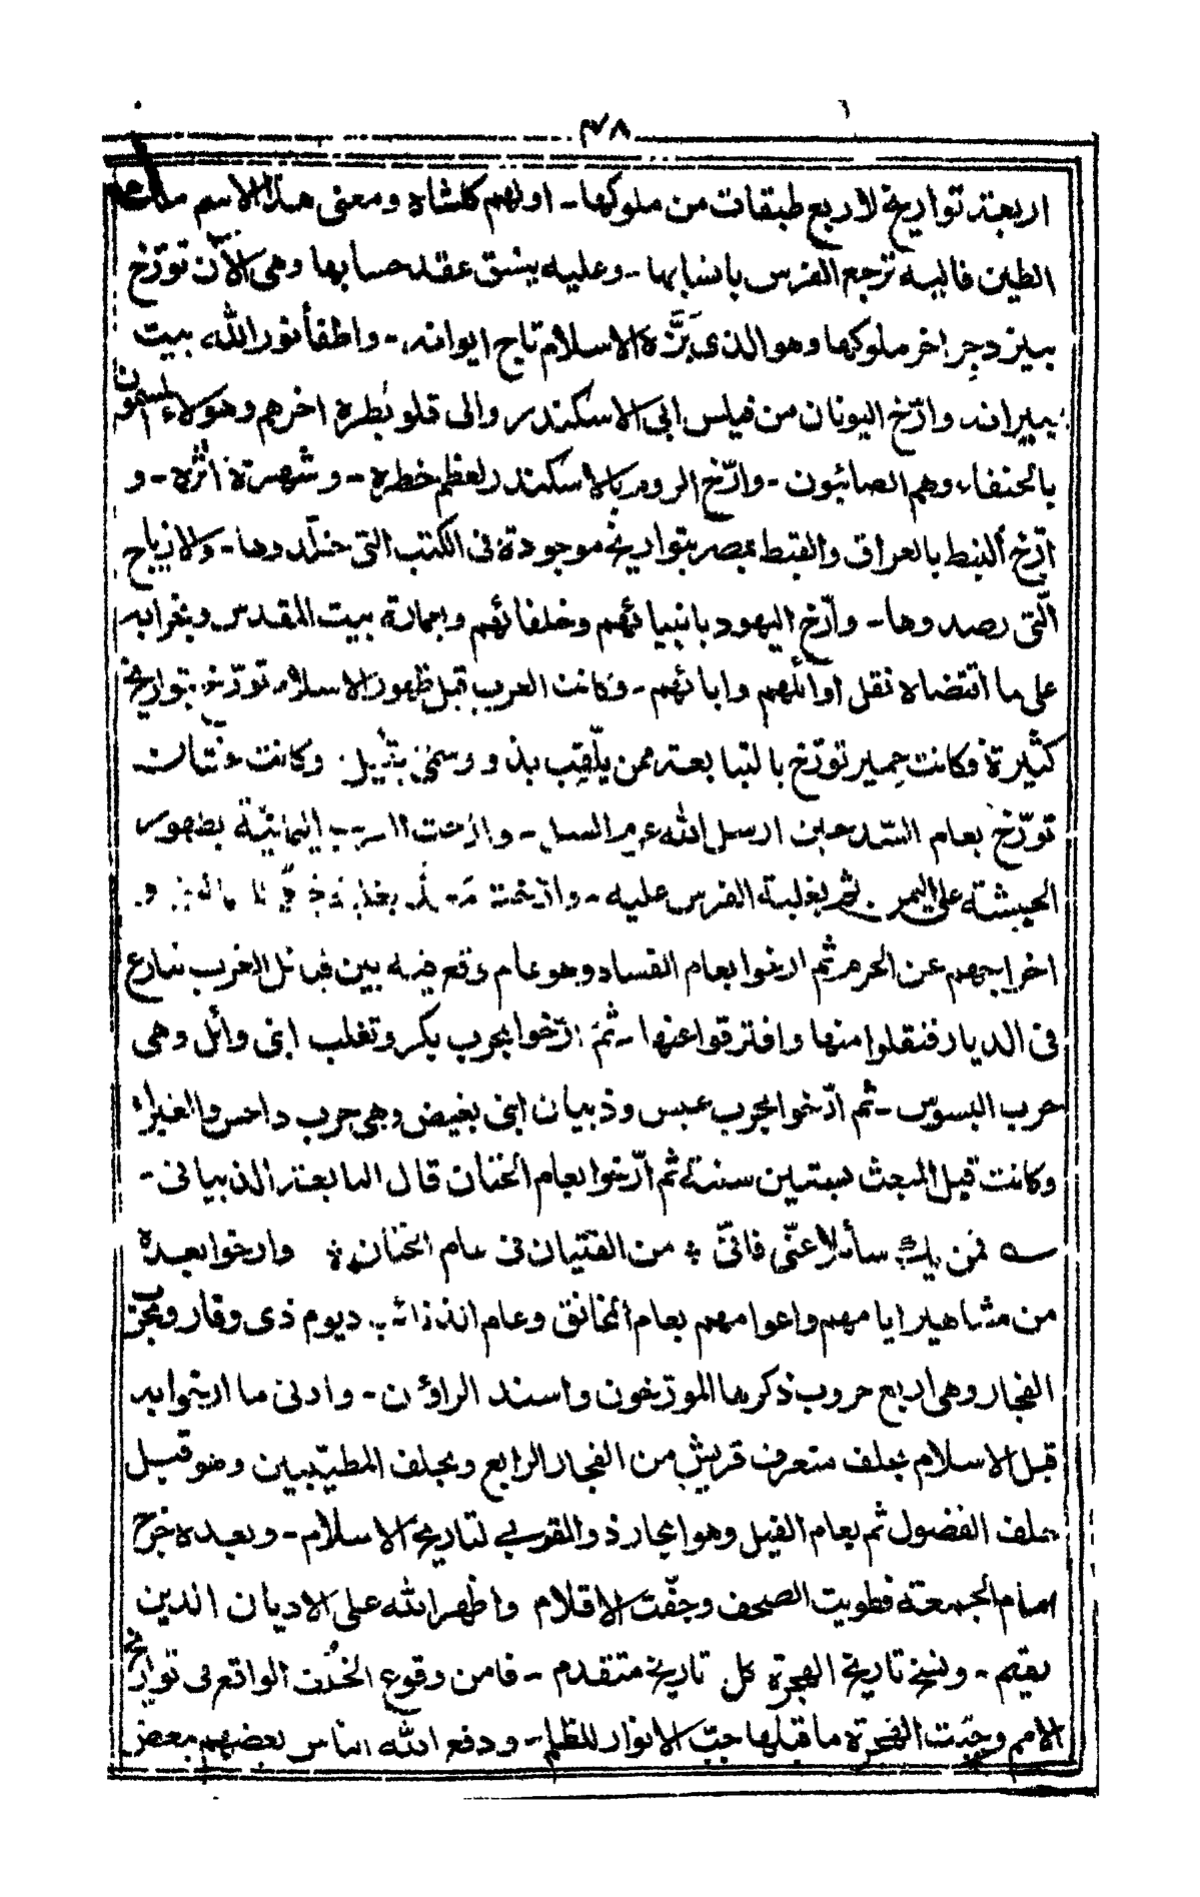 ٣٧٨
اربعة تواريخ لاربع طبقات من ملوكها - اولهم كلشاه ومعنى هذا الاسم ملك
الطين فاليه ترجع الفرس بانسابها - وعليه ينسق عقد حسابها وهى الآن تورّخ
بيزدجرد اخر ملوكها وهو الذى بَزَّه الاسلام تاج ايوانه - واطفأ نور الله بيت
نيرانه وارّخ اليونان من فيلبس ابى الاسكندر والى قلو بطرة اخرهم وهؤلاء المسمون
بالحنفاء وهم الصائبون - وارّخ الروم بالاسكندر لعظم خطره - وشهرة اثره - و
ارّخ النبط بالعراق والقبط بمصر بتواريخ موجودة فى الكتب التى خلّدوها - والازياج
الّتى رصدوها - وارّخ اليهود بانبيائهم وخلفائهم وبعمارة بيت المقدس وبخرابه
على ما اقتضاه نقل اوائلهم وابائهم - وكانت العرب قبل ظهور الاسلام تورّخ بتواريخ
كثيرة فكانت حمير تورّخ بالتبابعة ممن يلّقب بذو وسمّى بقيل وكانت غسّان
تورّخ بعام السّد حين ارسل الله عرم السيل - وارخت العرب اليمانيّة بظهور
الحبشة على اليمن ثم بغلبة الفرس عليه - وارّخت
اخراجهم عن الحرم ثم ارخوا بعام الفساد وهو عام وقع فيه بين قبائل العرب تنازع
فى الديار فنقلوا منها وافترقوا عنها - ثمّ ارّخوا بحرب بكر وتغلب ابنى وائل وهى
حرب البسوس - ثم ارّخوا بحرب عبس وذبيان ابنى بغيض وهى حرب داحس والغبراء
وكانت قبل المبعث بستين سنة ثم ارّخوا بعام الخنان قال النابغة الذبيانى -
فمن يك سائلا عنّى فانّى ؞ من الفتيان فى عام الخنان ؞ وارخوا بعدة
من مشاهير ايامهم واعوامهم بعام المخانق وعام الذنائب ويوم ذى وقار وبحرب
الفجار وهى اربع حروب ذكرها المورّخون واسند الراؤن - وادنى ما ارخوا به
قبل الاسلام بحلف متعرف قريش من الفجار الرابع وبحلف المطيّبين وهو قبل
حلف الفضول ثم بعام الفيل وهو الجار ذو القربى لتاريخ الاسلام - وبعده خرج
امام الجمعة فطويت الصحف وجفّت الاقلام واظهر الله على الاديان الدين
بقيم - ونسخ تاريخ الهجرة كل تاريخ متقدم - فامن وقوع الخلف الواقع فى تواريخ
الامم وجبّت الهجرة ما قبلها جبّ الانوار للظلم - ودفع الله الناس بعضهم ببعض